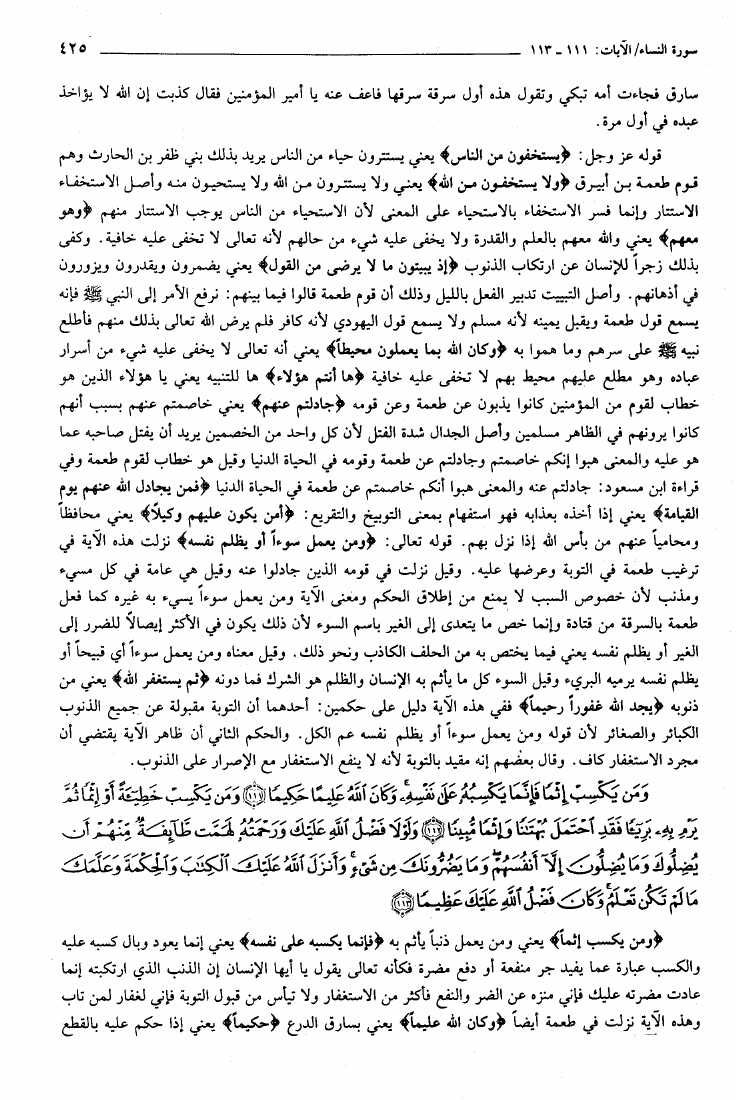 سورة النساء/ الآيات: ١١١ ـ ١١٣ ٤٢٥
سارق فجاءت أمه تبكي وتقول هذه أول سرقة سرقها فاعف عنه يا أمير المؤمنين فقال كذبت إن الله لا يؤاخذ
عبده في أول مرة.
قوله عز وجل: ﴿يستخفون من الناس﴾ يعني يستترون حياء من الناس يريد بذلك بني ظفر بن الحارث وهم
قوم طعمة بن أبيرق ﴿ولا يستخفون من الله﴾ يعني ولا يستترون من الله ولا يستحيون منه وأصل الاستخفاء
الاستتار وإنما فسر الاستخفاء بالاستحياء على المعنى لأن الاستحياء من الناس يوجب الاستتار منهم ﴿وهو
معهم﴾ يعني والله معهم بالعلم والقدرة ولا يخفى عليه شيء من حالهم لأنه تعالى لا تخفى عليه خافية. وكفى
بذلك زجراً للإنسان عن ارتكاب الذنوب ﴿إذ يبيتون ما لا يرضى من القول﴾ يعني يضمرون ويقدرون ويزورون
في أذهانهم. وأصل التبييت تدبير الفعل بالليل وذلك أن قوم طعمة قالوا فيما بينهم: نرفع الأمر إلى النبي ﷺ فإنه
يسمع قول طعمة ويقبل يمينه لأنه مسلم ولا يسمع قول اليهودي لأنه كافر فلم يرض الله تعالى بذلك منهم فأطلع
نبيه ﷺ على سرهم وما هموا به ﴿وكان الله بما يعملون محيطاً﴾ يعني أنه تعالى لا يخفى عليه شيء من أسرار
عباده وهو مطلع عليهم محيط بهم لا تخفى عليه خافية ﴿ها أنتم هؤلاء﴾ ها للتنبيه يعني يا هؤلاء الذين هو
خطاب لقوم من المؤمنين كانوا يذبون عن طعمة وعن قومه ﴿جادلتم عنهم﴾ يعني خاصمتم عنهم بسبب أنهم
كانوا يرونهم في الظاهر مسلمين وأصل الجدال شدة الفتل لأن كل واحد من الخصمين يريد أن يفتل صاحبه عما
هو عليه والمعنى هبوا إنكم خاصمتم وجادلتم عن طعمة وقومه في الحياة الدنيا وقيل هو خطاب لقوم طعمة وفي
قراءة ابن مسعود: جادلتم عنه والمعنى هبوا أنكم خاصمتم عن طعمة في الحياة الدنيا ﴿فمن يجادل الله عنهم يوم
القيامة﴾ يعني إذا أخذه بعذابه فهو استفهام بمعنى التوبيخ والتقريع: ﴿أمن يكون عليهم وكيلاً﴾ يعني محافظاً
ومحامياً عنهم من بأس الله إذا نزل بهم. قوله تعالى: ﴿ومن يعمل سوءاً أو يظلم نفسه﴾ نزلت هذه الآية في
ترغيب طعمة في التوبة وعرضها عليه. وقيل نزلت في قومه الذين جادلوا عنه وقيل هي عامة في كل مسيء
ومذنب لأن خصوص السبب لا يمنع من إطلاق الحكم ومعنى الآية ومن يعمل سوءاً يسيء به غيره كما فعل
طعمة بالسرقة من قتادة وإنما خص ما يتعدى إلى الغير باسم السوء لأن ذلك يكون في الأكثر إيصالاً للضرر إلى
الغير أو يظلم نفسه يعني فيما يختص به من الحلف الكاذب ونحو ذلك. وقيل معناه ومن يعمل سوءاً أي قبيحاً أو
يظلم نفسه يرميه البريء وقيل السوء كل ما يأثم به الإنسان والظلم هو الشرك فما دونه ﴿ثم يستغفر الله﴾ يعني من
ذنوبه ﴿يجد الله غفوراً رحيماً﴾ ففي هذه الآية دليل على حكمين: أحدهما أن التوبة مقبولة عن جميع الذنوب
الكبائر والصغائر لأن قوله ومن يعمل سوءاً أو يظلم نفسه عم الكل. والحكم الثاني أن ظاهر الآية يقتضي أن
مجرد الاستغفار كاف. وقال بعضهم إنه مقيد بالتوبة لأنه لا ينفع الاستغفار مع الإصرار على الذنوب.
وَمَن يَكْسِبْ إِثْمًا فَإِنَّمَا يَكْسِبُهُ عَلَىٰ نَفْسِهِۦ ۚ وَكَانَ اللَّهُ عَلِيمًا حَكِيمًا ﴿١١١﴾ وَمَن يَكْسِبْ خَطِيٓـَٔةً أَوْ إِثْمًا ثُمَّ
يَرْمِ بِهِۦ بَرِيٓـًٔا فَقَدِ احْتَمَلَ بُهْتَٰنًا وَإِثْمًا مُّبِينًا ﴿١١٢﴾ وَلَوْلَا فَضْلُ اللَّهِ عَلَيْكَ وَرَحْمَتُهُۥ لَهَمَّت طَّآئِفَةٌ مِّنْهُمْ أَن
يُضِلُّوكَ وَمَا يُضِلُّونَ إِلَّآ أَنفُسَهُمْ ۖ وَمَا يَضُرُّونَكَ مِن شَىْءٍ ۚ وَأَنزَلَ اللَّهُ عَلَيْكَ الْكِتَٰبَ وَالْحِكْمَةَ وَعَلَّمَكَ
مَا لَمْ تَكُن تَعْلَمُ ۚ وَكَانَ فَضْلُ اللَّهِ عَلَيْكَ عَظِيمًا ﴿١١٣﴾
﴿ومن يكسب إثماً﴾ يعني ومن يعمل ذنباً يأثم به ﴿فإنما يكسبه على نفسه﴾ يعني إنما يعود وبال كسبه عليه
والكسب عبارة عما يفيد جر منفعة أو دفع مضرة فكأنه تعالى يقول يا أيها الإنسان إن الذنب الذي ارتكبته إنما
عادت مضرته عليك فإني منزه عن الضر والنفع فأكثر من الاستغفار ولا تيأس من قبول التوبة فإني لغفار لمن تاب
وهذه الآية نزلت في طعمة أيضاً ﴿وكان الله عليماً﴾ يعني بسارق الدرع ﴿حكيماً﴾ يعني إذا حكم عليه بالقطع